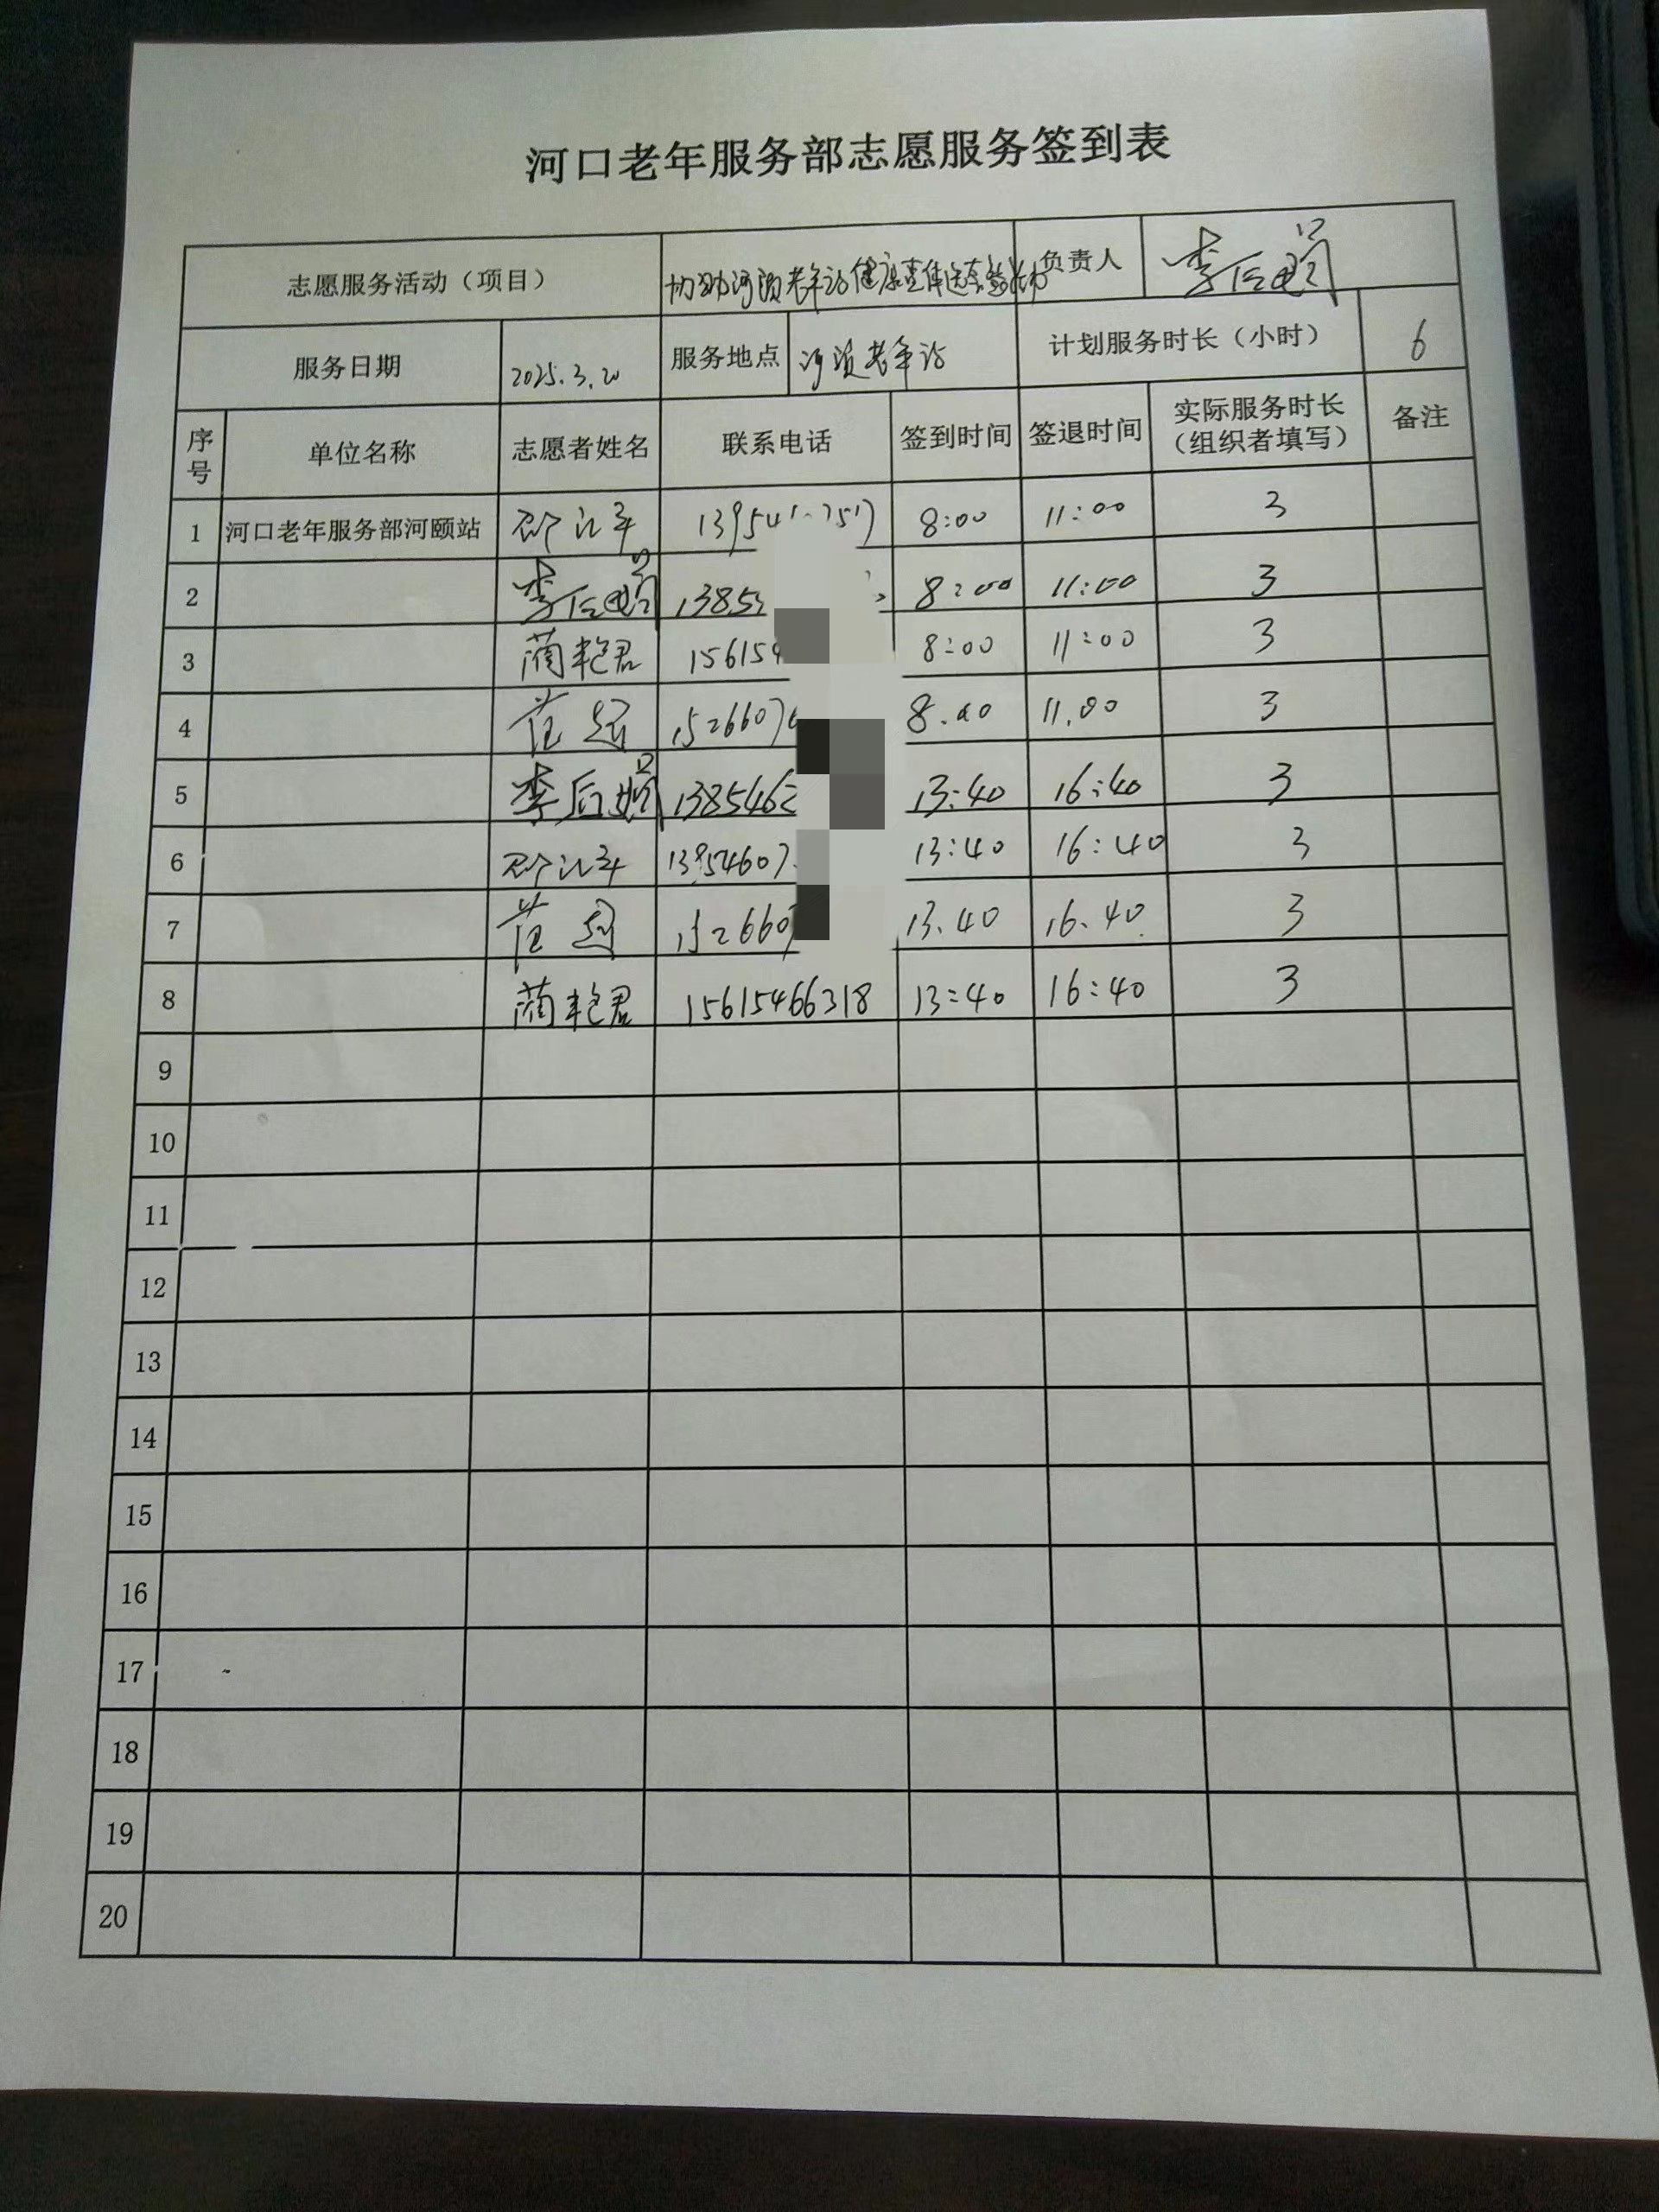 河口老年服务部志愿服务签到表
志愿服务活动（项目） 协助河颐老年站健康查体 负责人 李后娟
服务日期 2025.3.20 服务地点 河颐老年站 计划服务时长（小时） 6
序号 单位名称 志愿者姓名 联系电话 签到时间 签退时间 实际服务时长（组织者填写） 备注
1 河口老年服务部河颐站 8:00 11:00 3
2 李后娟 1385 8:00 11:00 3
3 蔺艳君 156154 8:00 11:00 3
4 范 1526607 8.00 11.00 3
5 李后娟 1385462 13:40 16:40 3
6 13954607 13:40 16:40 3
7 范 152660 13.40 16.40 3
8 蔺艳君 15615466318 13:40 16:40 3
9
10
11
12
13
14
15
16
17
18
19
20